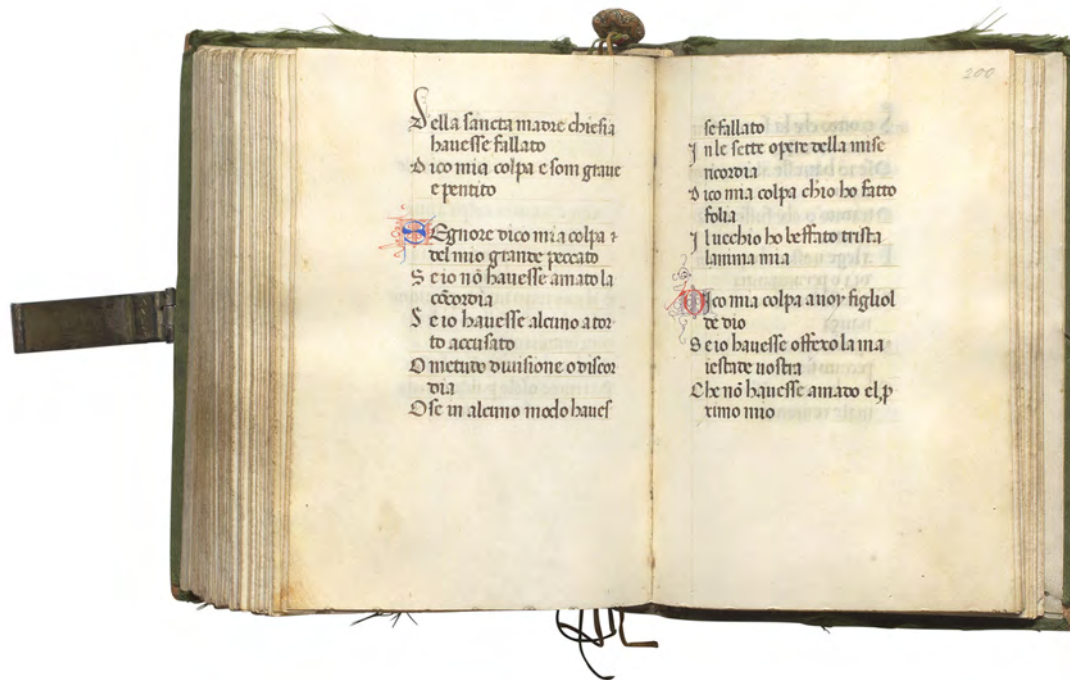 Della sancta madre chiesia
hauesse fallato
Dico mia colpa e som graue
e pentito
SEgnore dico mia colpa ⁊
del mio grande peccato
Se io nō hauesse amato la
cōcordia
Se io hauesse alcuno a tor
to accusato
O metuto diuisione o discor
dia
O se in alcuno modo hauess
200
se fallato
In le sette opere della mise
ricordia
Dico mia colpa chio ho fatto
folia
Il ucchio ho beffato trista
lanima mia
DIco mia colpa a uoy figliol
de dio
Se io hauesse offexo la ma
iestate uostra
Che nō hauesse amado el ꝓ
ximo mio